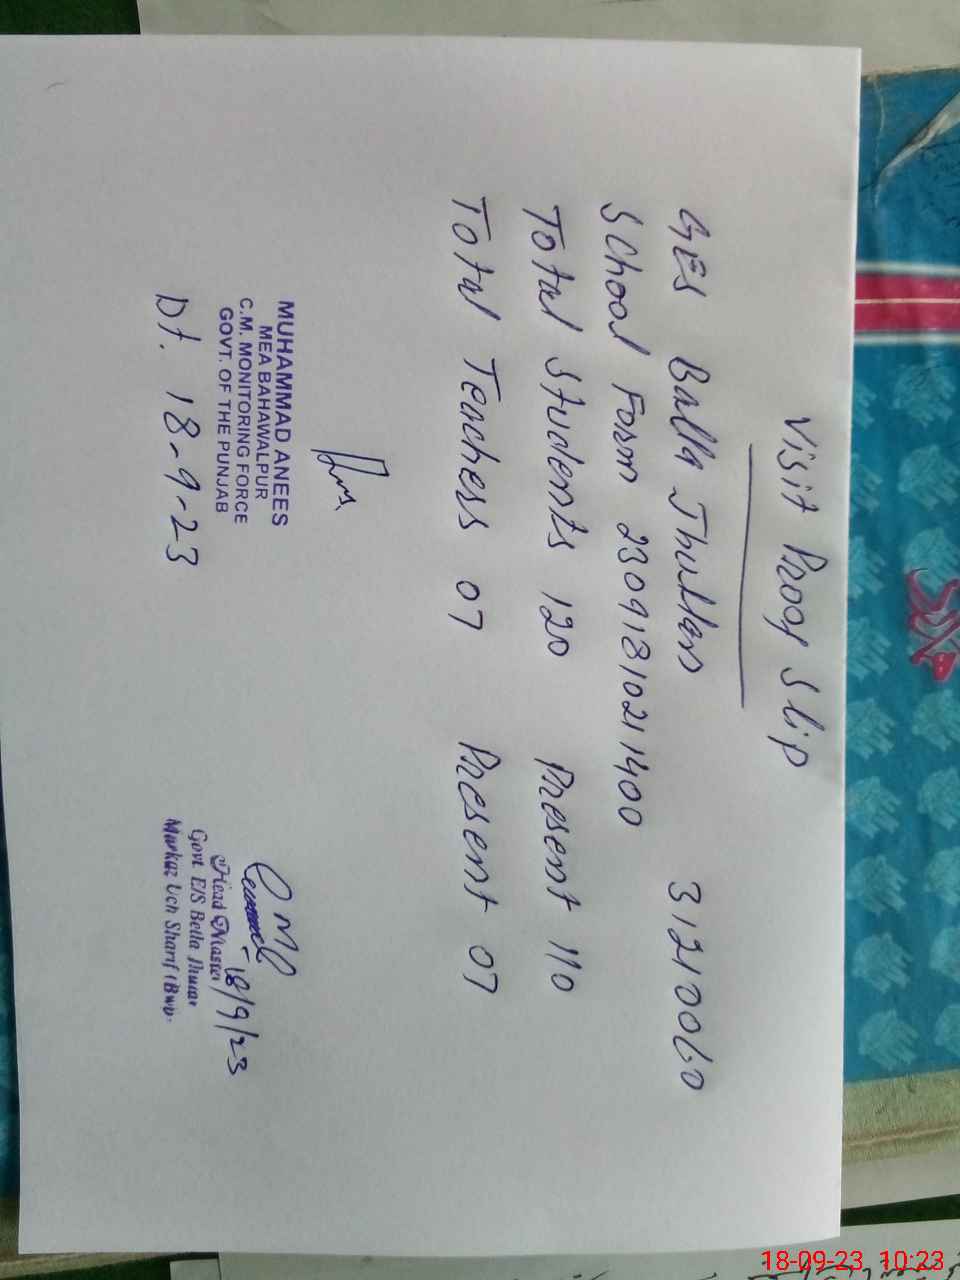 Visit Proof Slip
GES Balla Thullan 31210060
School Form 2309181021400
Total Students 120 Present 110
Total Teachers 07 Present 07
MUHAMMAD ANEES
MEA BAHAWALPUR
C.M. MONITORING FORCE
GOVT. OF THE PUNJAB
Dt. 18-9-23
18/9/23
Head Master
Govt. E/S Bella
Markaz Uch Sharif (Bwp.
18-09-23 10:23